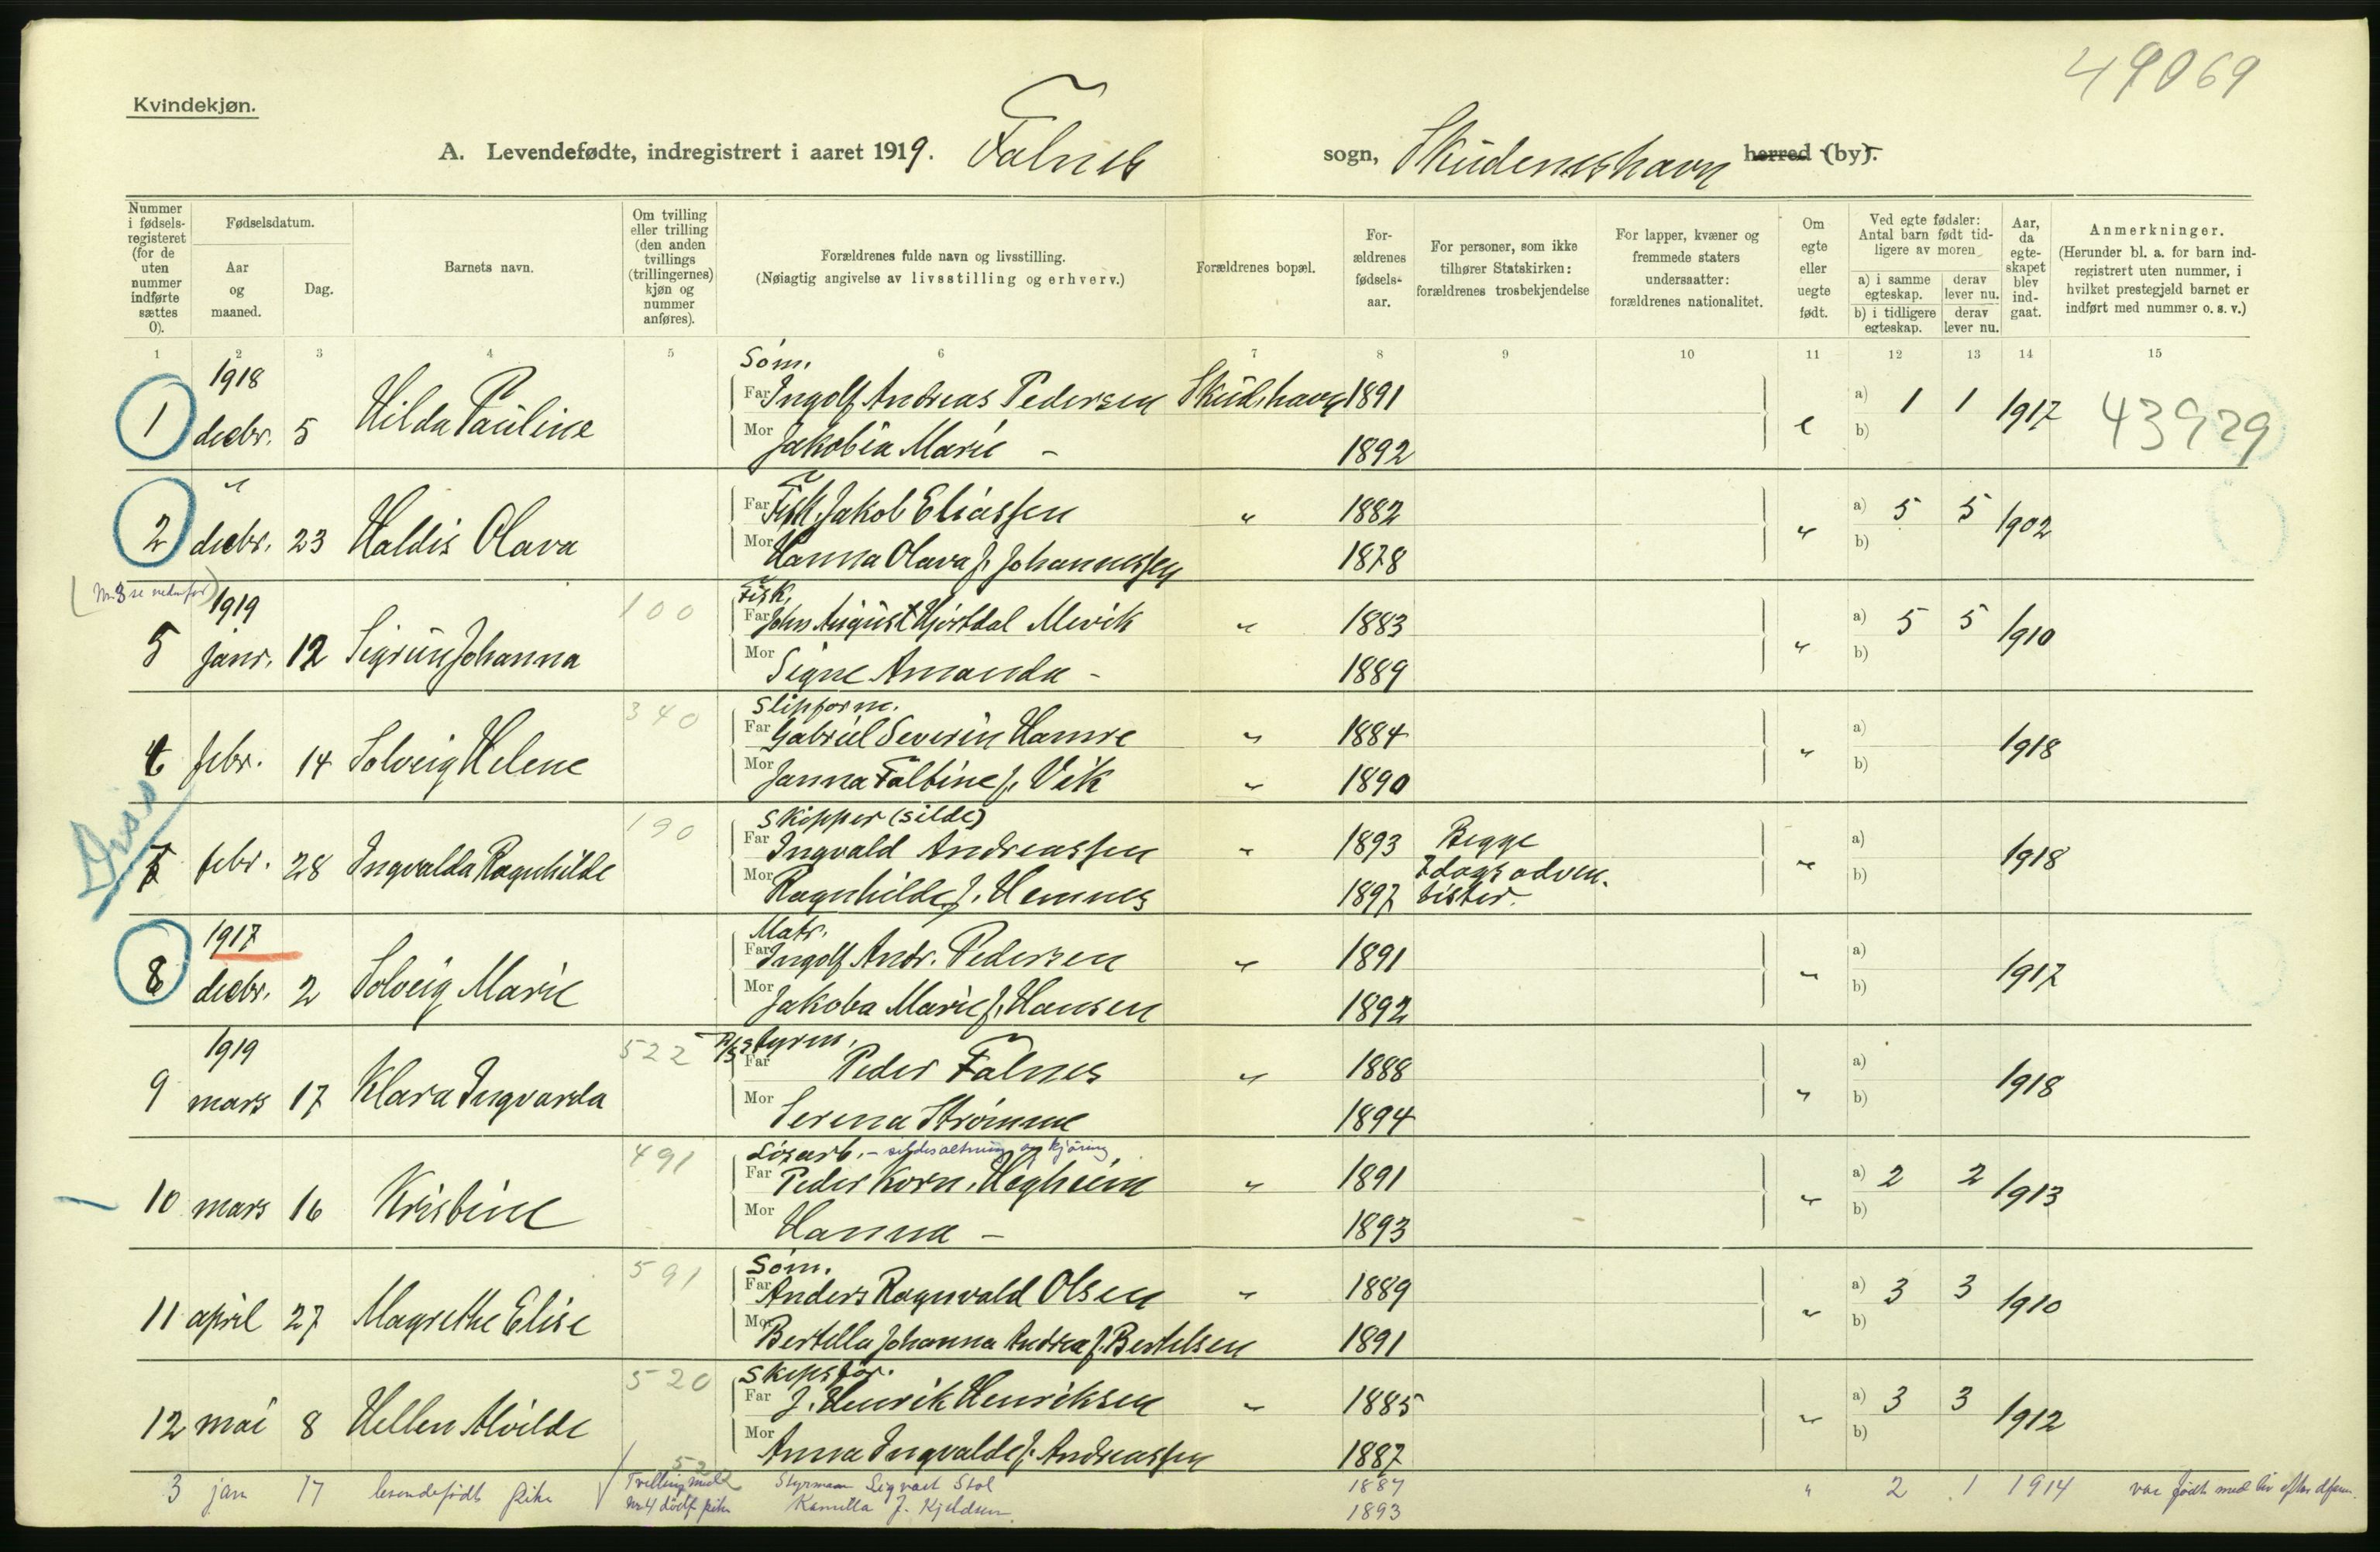 49069
Kvindekjøn.
A. Levendefødte, indregistrert i aaret 1919. Falnes sogn, Skudeneshavn herred (by).
Nummer i fødsels-registeret (for de uten nummer indførte sættes 0).
Fødselsdatum.
Aar og maaned.
Dag.
Barnets navn.
Om tvilling eller trilling (den anden tvillings (trillingernes) kjøn og nummer anføres).
Forældrenes fulde navn og livsstilling.
(Nøiagtig angivelse av livsstilling og erhverv.)
Forældrenes bopæl.
For-ældrenes fødsels-aar.
For personer, som ikke tilhører Statskirken: forældrenes trosbekjendelse
For lapper, kvæner og fremmede staters undersaatter: forældrenes nationalitet.
Om egte eller uegte født.
Ved egte fødsler: Antal barn født tid-ligere av moren
a) i samme egteskap.
derav lever nu.
b) i tidligere egteskap.
derav lever nu.
Aar, da egte-skapet blev ind-gaat.
Anmerkninger.
(Herunder bl. a. for barn ind-registrert uten nummer, i hvilket prestegjeld barnet er indført med nummer o. s. v.)
1 2 3 4 5 6 7 8 9 10 11 12 13 14 15
1918 Søm.
Far Ingolf Andreas Pedersen Skudeshavn 1891 a) 1 1 1917 43929
1 decbr. 5 Hilda Pauline e b)
Mor Jakobia Marie - 1892
"
Far Fisk. Jakob Eliassen " 1882 a) 5 5 1902
2 decbr. 23 Haldis Olava " b)
Mor Hanna Olava f. Johannessen 1878
(Nr. 3 se nedenfor) 1919 100 Fisk.
Far John August Hjortdal Mevik " 1883 a) 5 5 1910
5 janr. 12 Sigrun Johanna " b)
Mor Signe Amanda - 1889
340 Slipform.
Far Gabriel Severin Hamre " 1884 a) 1918
febr. 14 Solveig Helene " b)
Mor Janna Falbine f. Vik " 1890
190 Skipper (silde)
Far Ingvald Andreassen " 1893 Begge a) 1918
Diss febr. 28 Ingvalda Ragnhilde 7dags adven- " b)
Mor Ragnhilde f. Hemnes 1897 tister.
1917 Matr.
Far Ingolf Andr. Pedersen " 1891 a) 1917
8 decbr. 2 Solveig Marie " b)
Mor Jakoba Marie f. Hansen 1892
1919 522 styrm.
Far Peder Falnes " 1888 a) 1918
9 mars 17 Klara Ingvarda " b)
Mor Serena Strømme 1894
491 Løsarb. - sildesaltning og kjøring
Far Peder Korn. Hegheim " 1891 a) 2 2 1913
10 mars 16 Kristine " b)
Mor Hanna - 1893
591 Søm.
Far Anders Ragnvald Olsen " 1889 a) 3 3 1910
11 april 27 Magrethe Elise " b)
Mor Bertella Johanna Andrea f. Bertelsen 1891
520 Skipsfør.
Far J. Henrik Henriksen " 1885 a) 3 3 1912
12 mai 8 Hellen Alvilde " b)
Mor Anna Ingvalde f. Andreassen 1887
522
3 jan 17 levendefødt pike Tvilling med Styrmann Sigvart Stol 1887 " 2 1 1914 var født med liv efter
Nr. 4 dødf. pike Kamilla f. Kjeldsen 1893